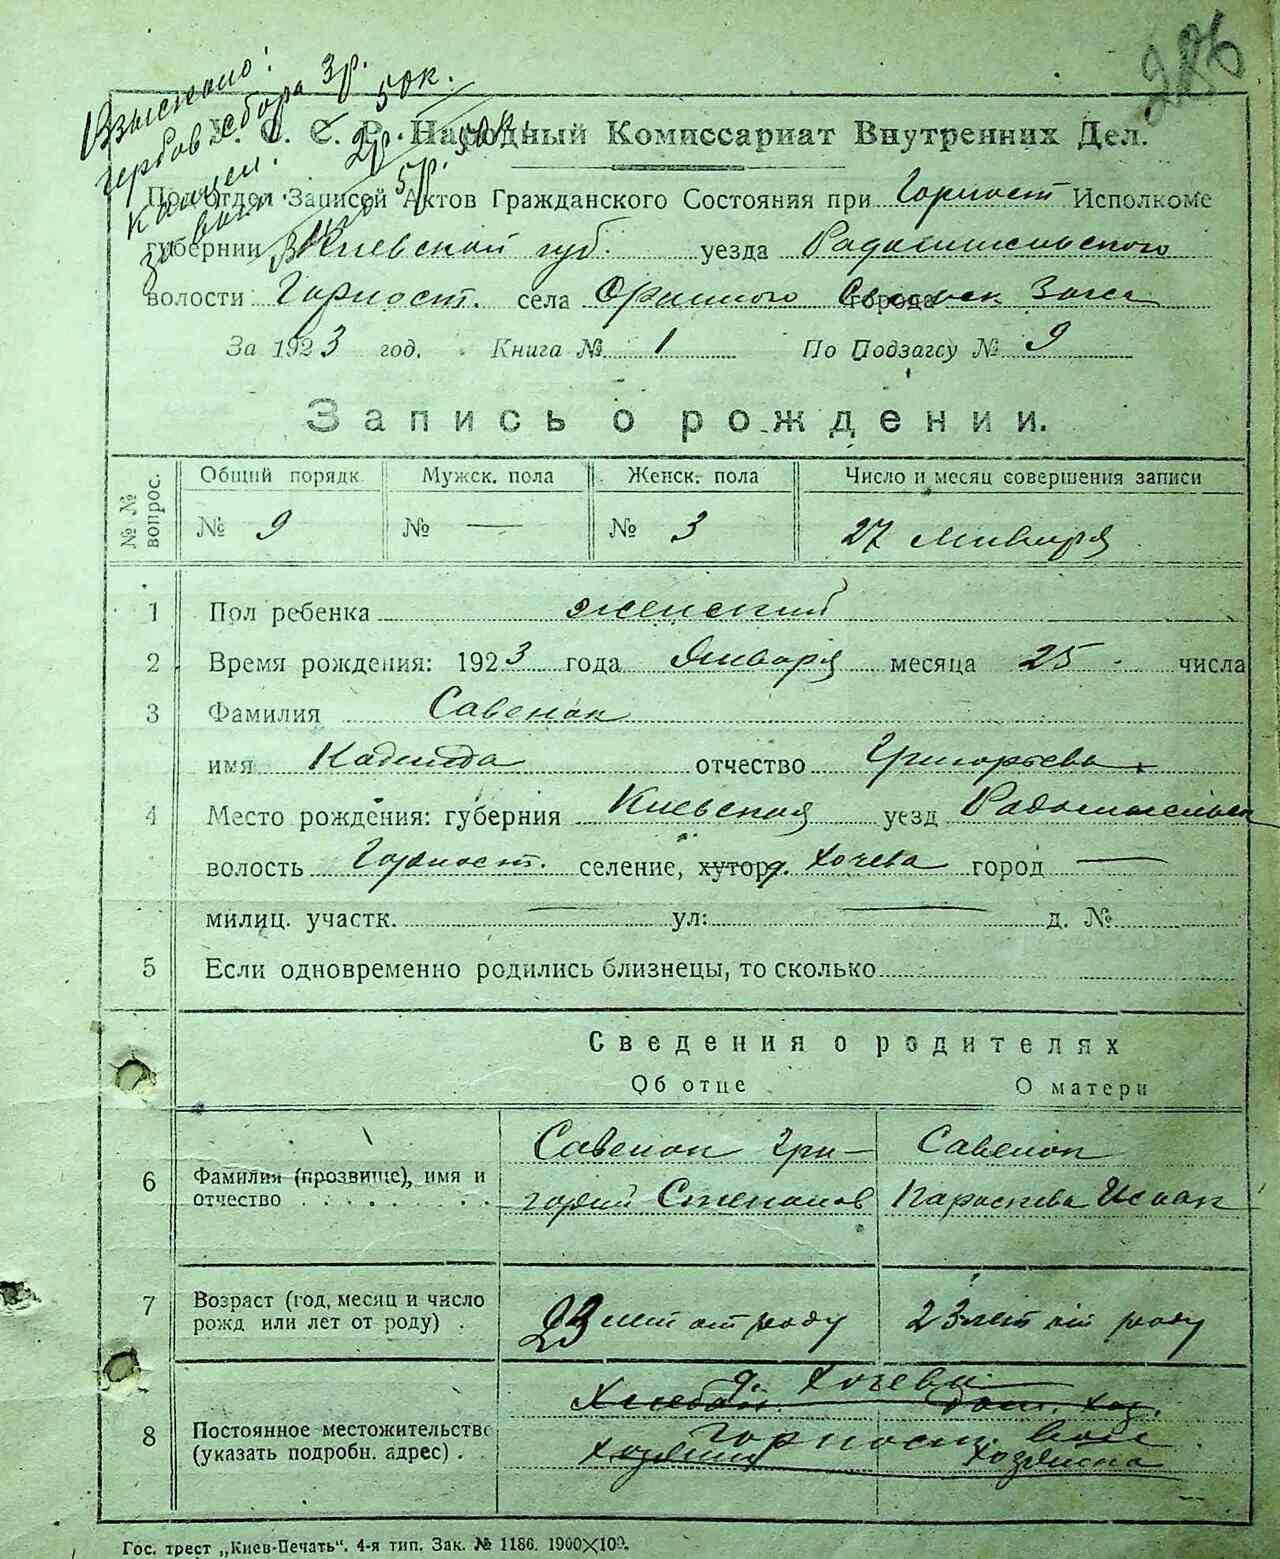 286
Взыскано:
гербов сбора 3р. 50к.
канцел. 2р.
5р. 50к.
У. С. С. Р. Народный Комиссариат Внутренних Дел.
Подотдел Записей Актов Гражданского Состояния при Горност Исполкоме
губернии Киевской губ. уезда Радомысльского
волости Горност. села Ораного города Загса
За 1923 год. Книга № 1 По Подзагсу № 9
Запись о рождении.
№ № вопрос. Общий порядк. Мужск. пола Женск. пола Число и месяц совершения записи
№ 9 № — № 3 27 января
1 Пол ребенка женский
2 Время рождения: 1923 года Января месяца 25 числа
3 Фамилия Савенок
имя Надежда отчество Григорьева
4 Место рождения: губерния Киевская уезд Радомысльск
волость Горност. селение, хутор д. Хочева город —
милиц. участк. — ул: — д. №
5 Если одновременно родились близнецы, то сколько
Сведения о родителях
Об отце О матери
6 Фамилия (прозвище), имя и отчество
Савенок Гри- Савенок
горий Степанов Параскева Исаак
7 Возраст (год, месяц и число рожд или лет от роду) .
23 лет от роду 23 лет от роду
8 Постоянное местожительство (указать подробн. адрес) .
д. Хочева
Хлебоп. дом. хоз.
Горност. вол.
Хозяин Хозяйка
Гос. трест „Киев-Печать“. 4-я тип. Зак. № 1186. 1900×100.